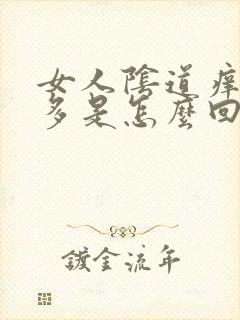 女人陰道痒
多是怎麼回
鍍金流年